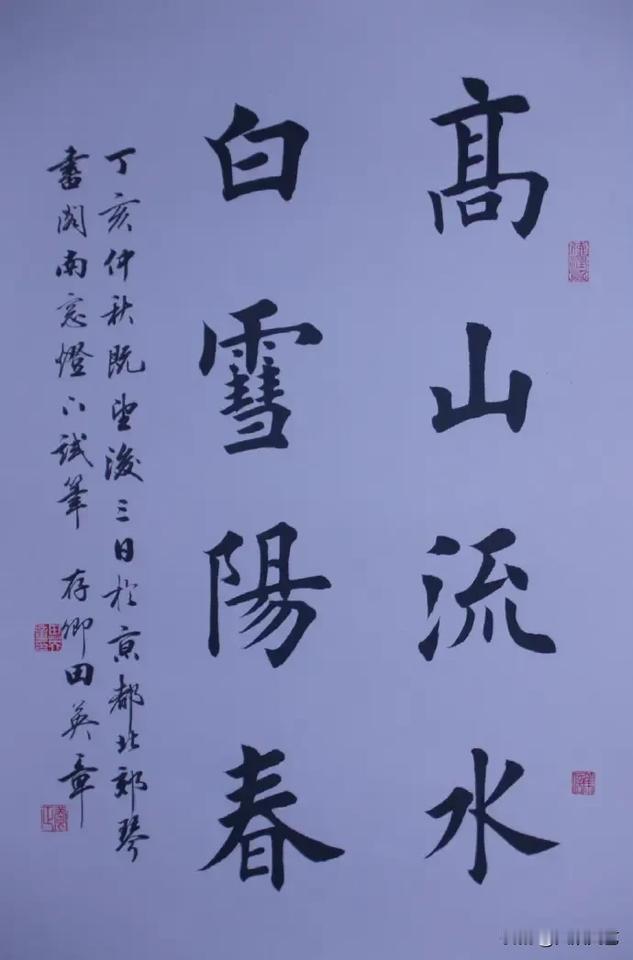 髙山流水
白雪陽春
丁亥仲秋既望後三日於京都北郊琴
書閣南窓燈下試筆 存卿田英章